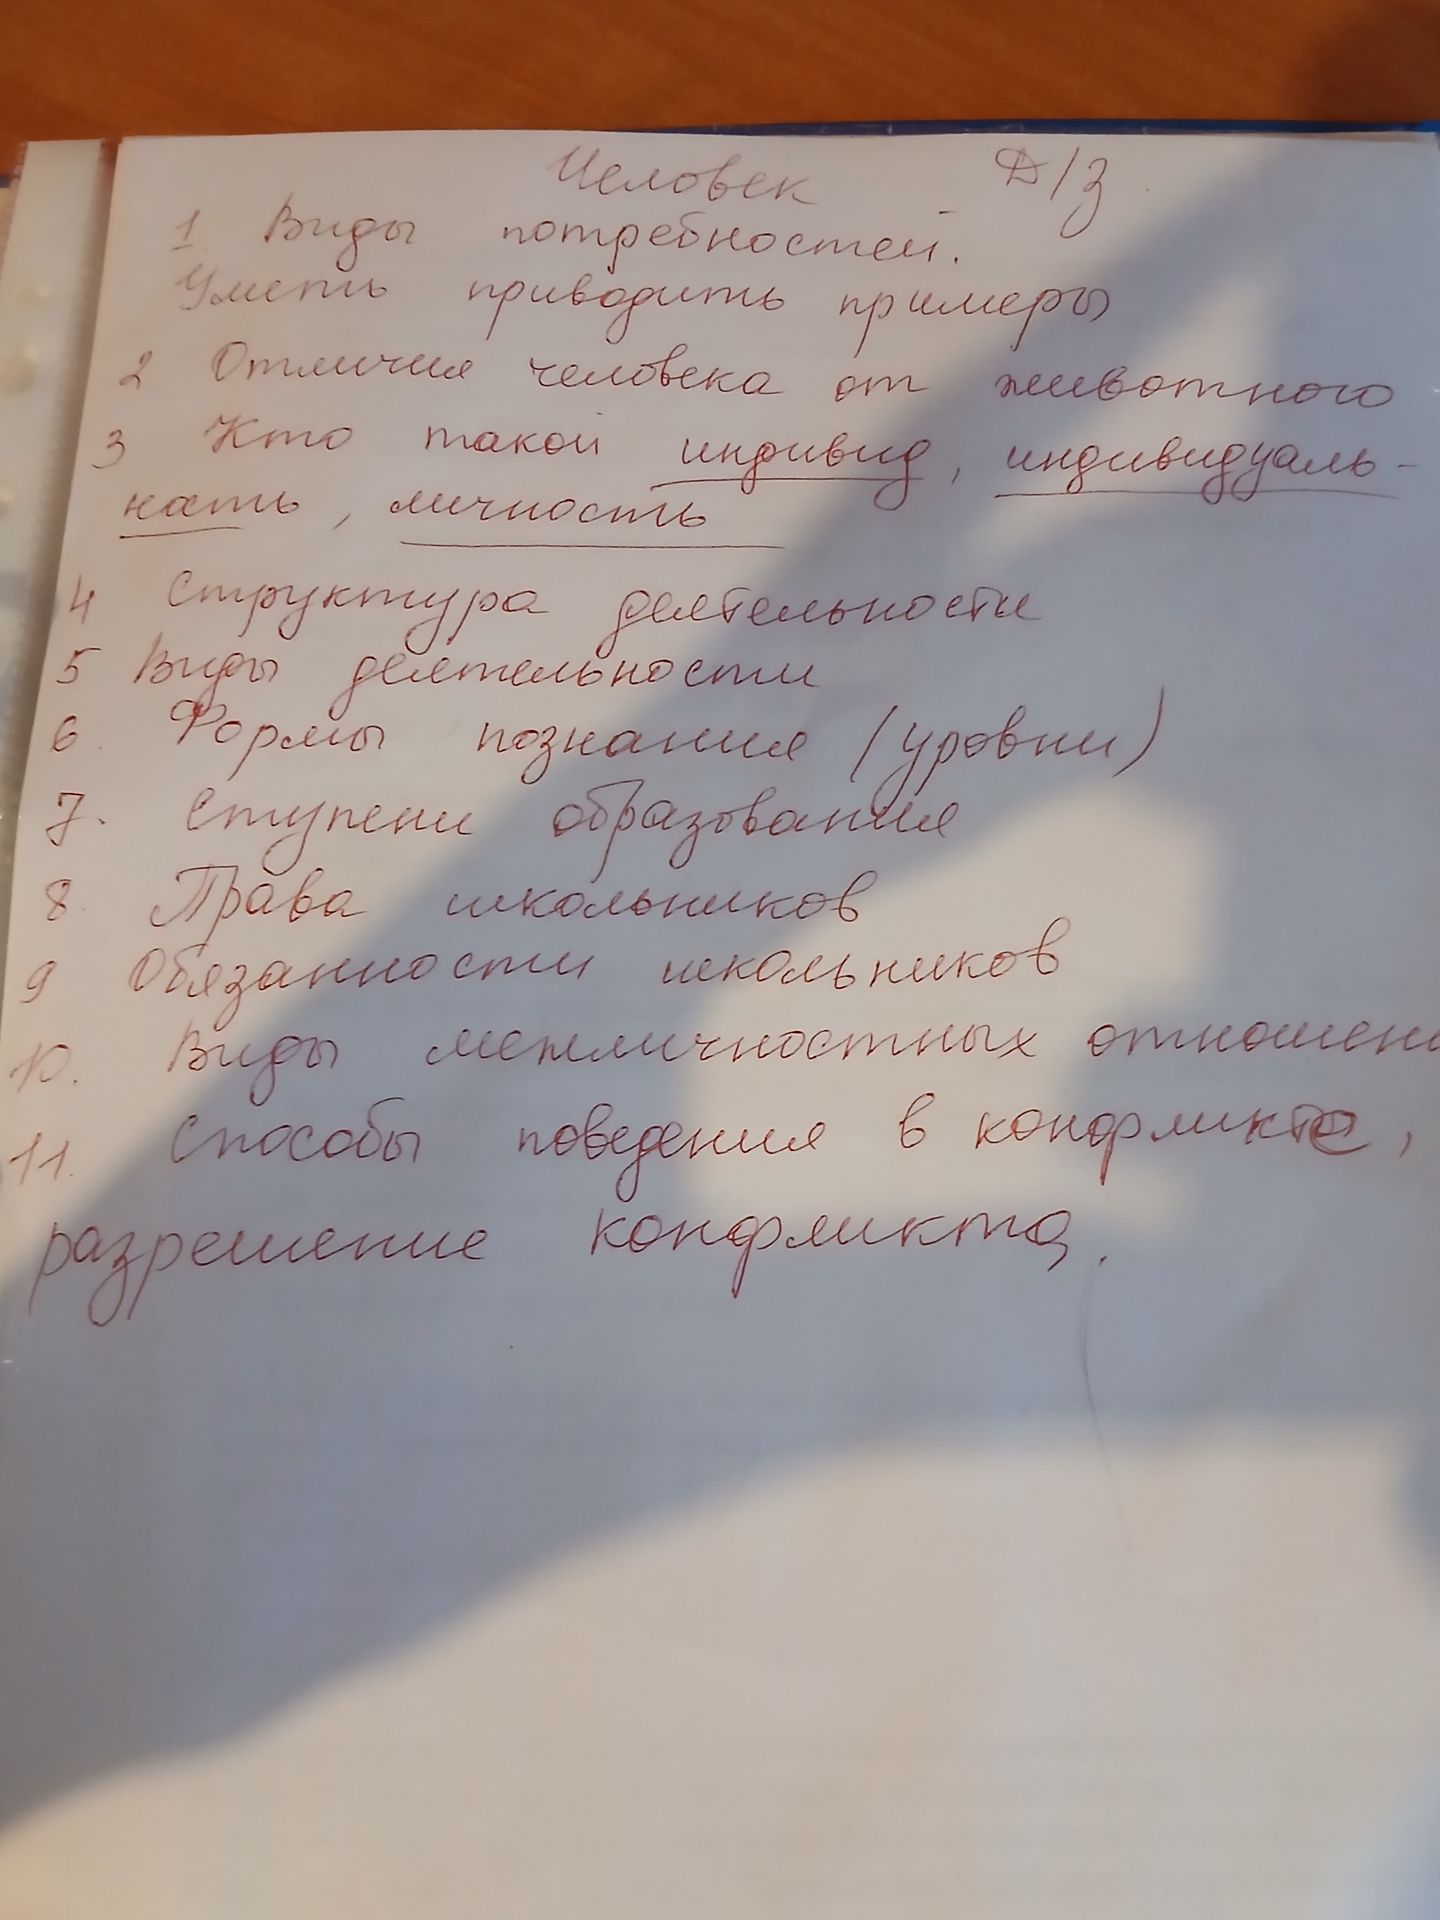 Человек Д/з
1 Виды потребностей.
Уметь приводить примеры
2. Отличия человека от животного
3 Кто такой индивид, индивидуаль-
ность, личность
4 Структура деятельности
5 Виды деятельности
6. Формы познания (уровни)
7. Ступени образования
8. Права школьников
9 Обязанности школьников
10. Виды межличностных отношени
11. Способы поведения в конфликте,
разрешение конфликта.